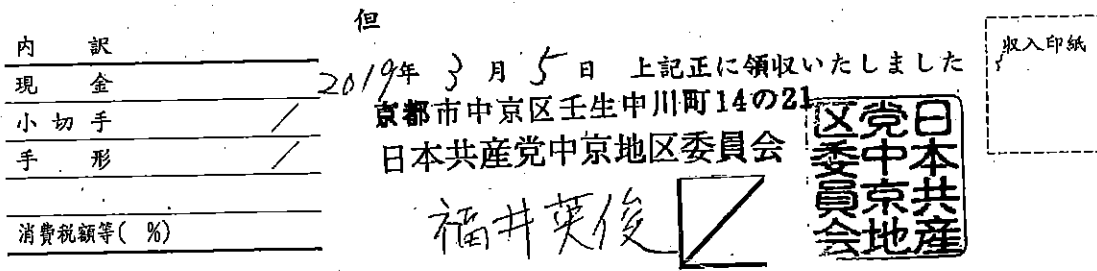 但
内訳
現金
小切手 /
手形 /
消費税額等( %)
2019年 3月 5日 上記正に領収いたしました
京都市中京区壬生中川町14の21
日本共産党中京地区委員会
福井英俊
日本共産
党中京地
区委員会
収入印紙